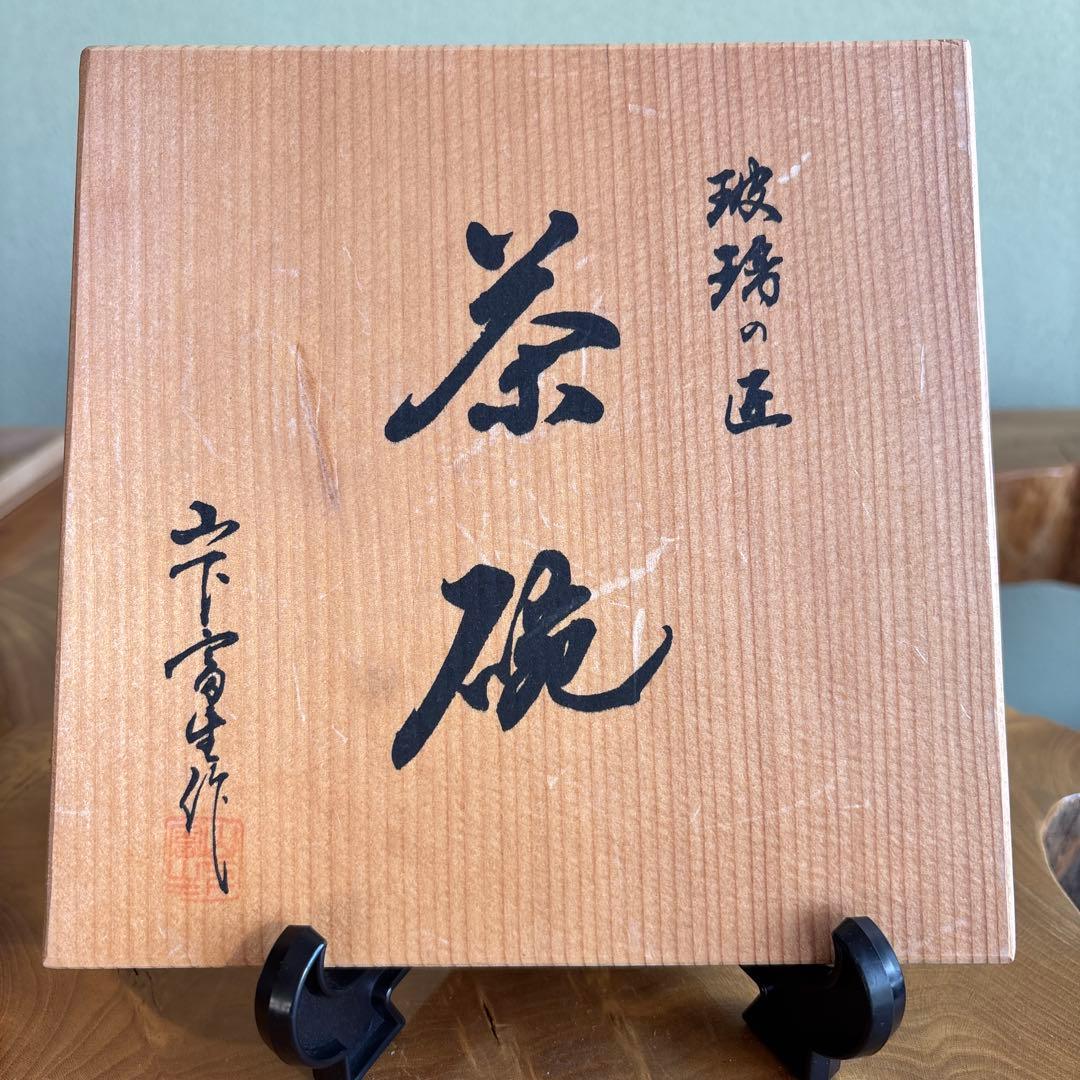 玻璃の匠
茶碗
山下富生作